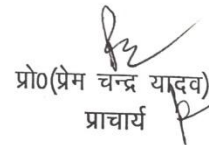 प्रो0(प्रेम चन्द्र यादव)
प्राचार्य